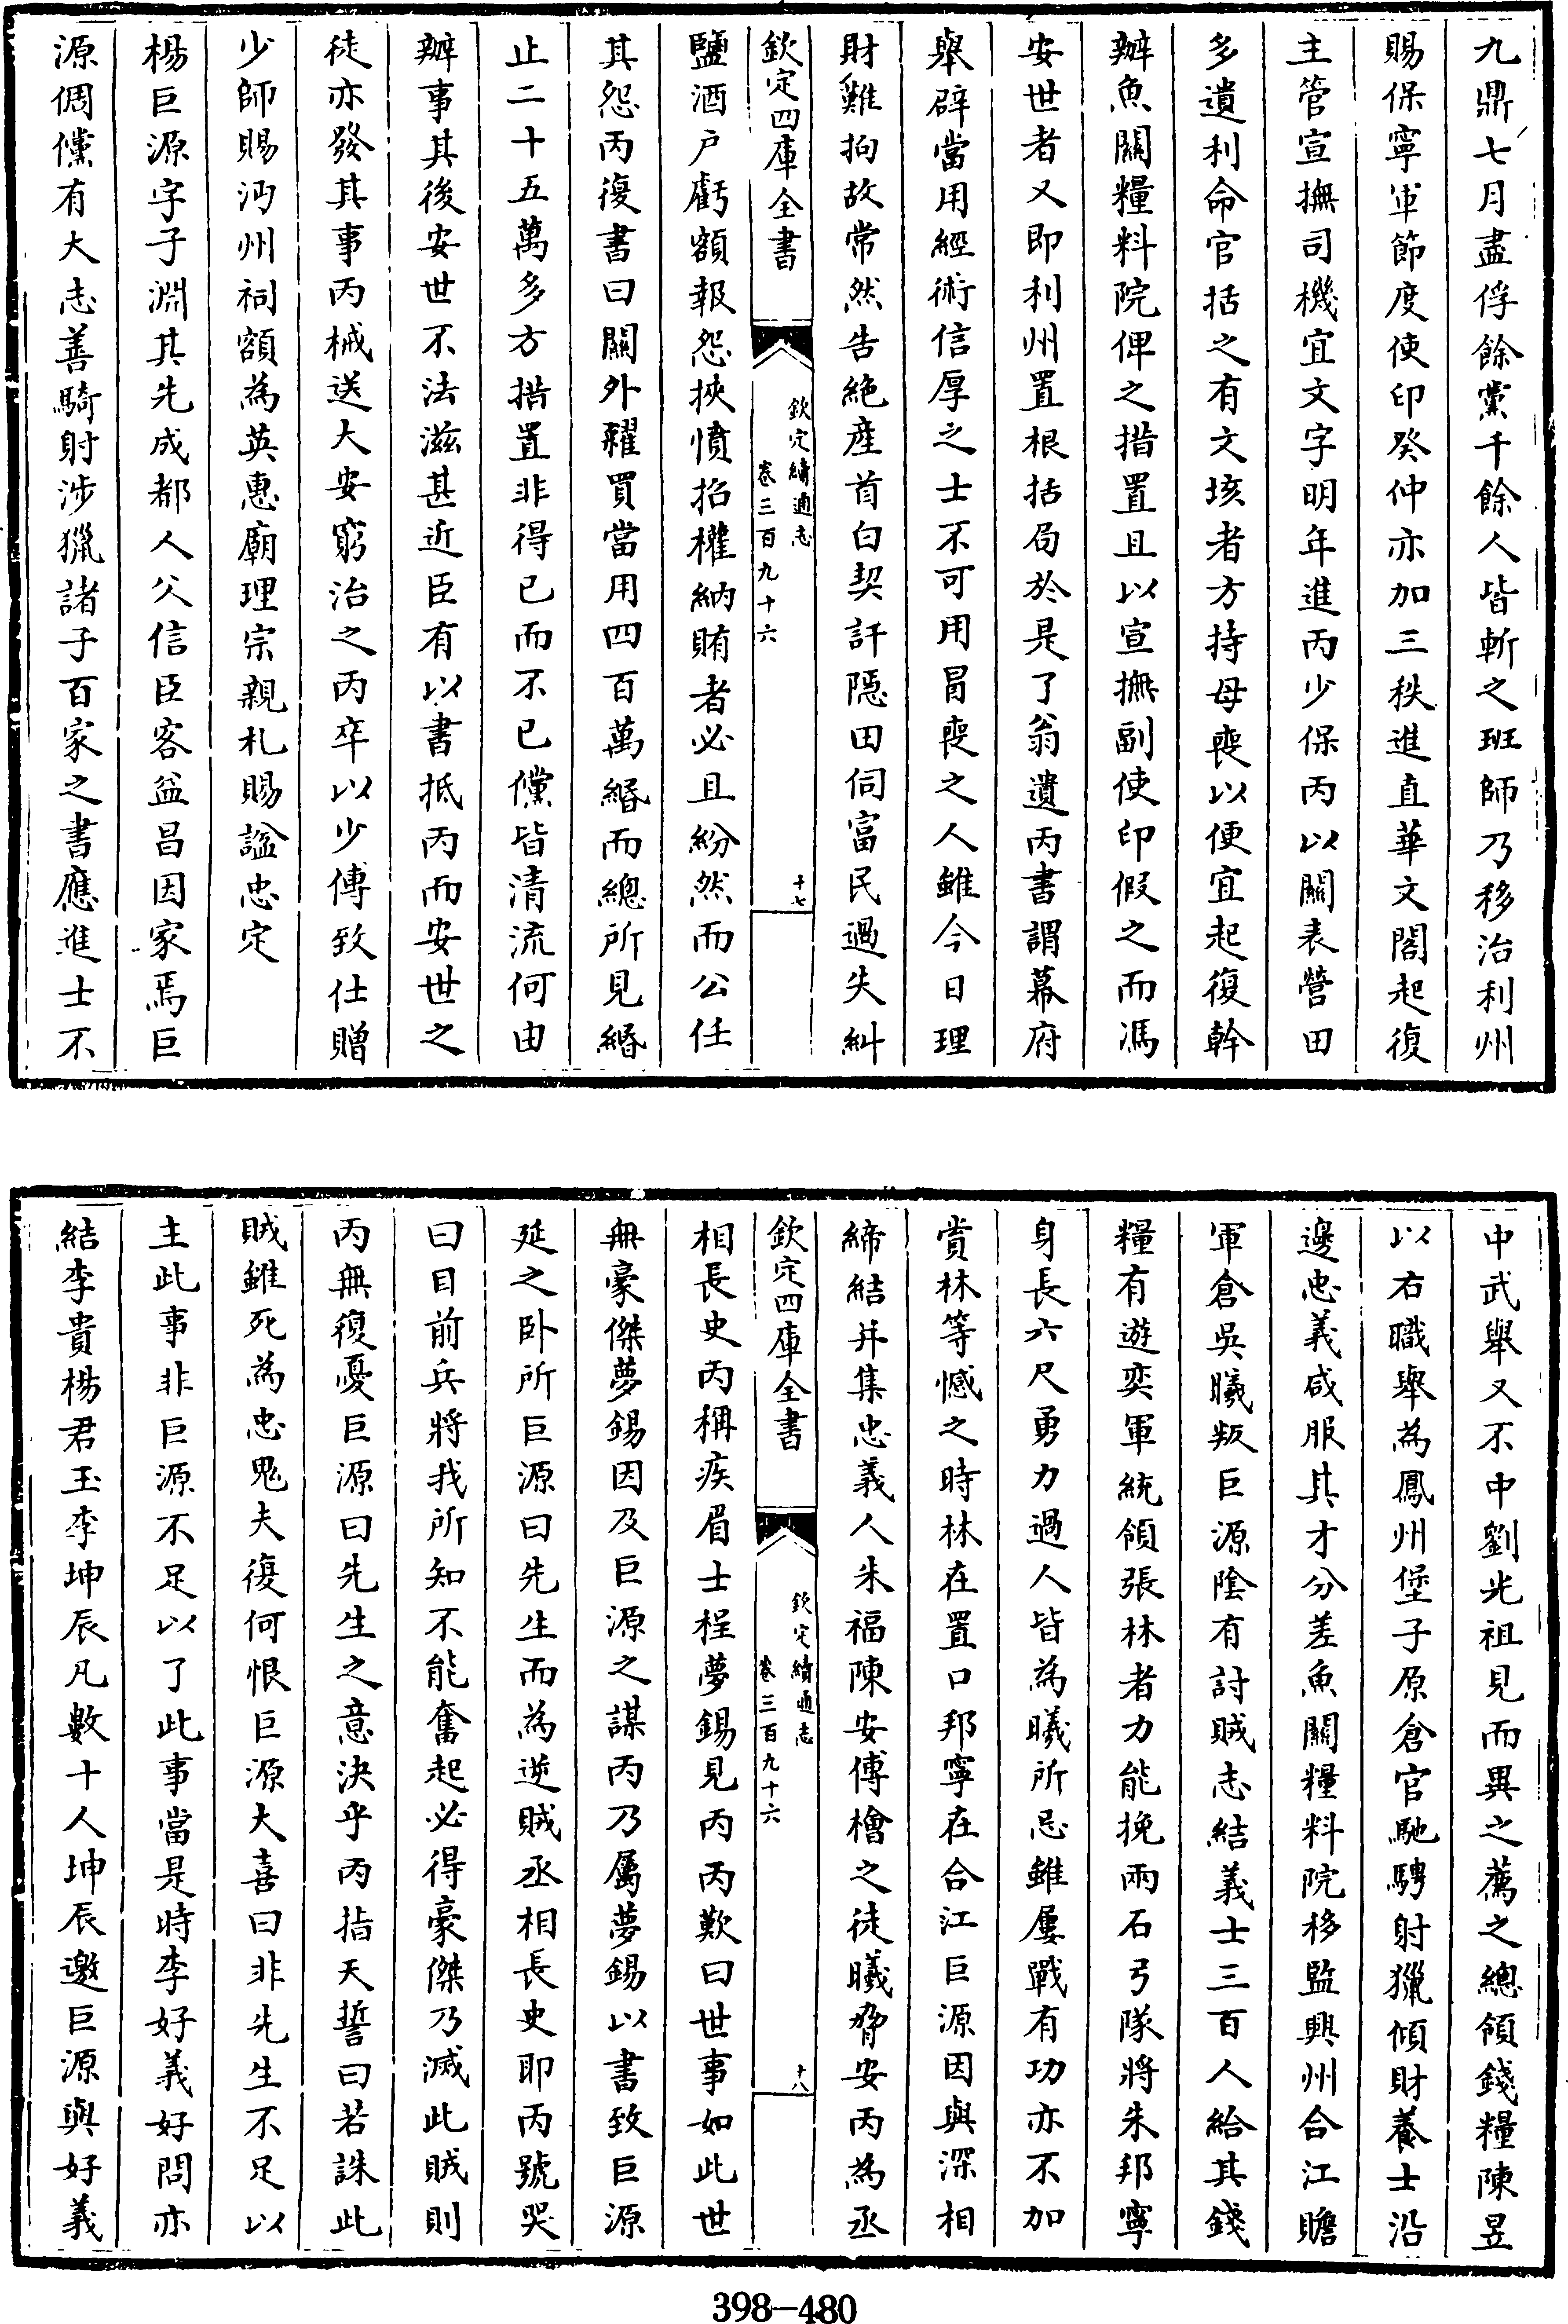 九鼎七月盡俘餘黨千餘人皆斬之班師乃移治利州
賜保寧軍節度使印癸仲亦加三秩進直華文閣起復
主管宣撫司機宜文字明年進丙少保丙以關表營田
多遺利命官括之有文垓者方持母喪以便宜起復幹
辦魚關糧料院俾之措置且以宣撫副使印假之而馮
安世者又即利州置根括局於是了翁遺丙書謂幕府
舉辟當用經術信厚之士不可用冒喪之人雖今日理
財難拘故常然告絶産首白契訐隠田伺富民過失糾
欽定四庫全書
欽定續通志
卷三百九十六
十七
鹽酒戶虧額報怨挾憤招權納賄者必且紛然而公任
其怨丙復書曰關外糴買當用四百萬緡而總所見緡
止二十五萬多方措置非得已而不已儻皆清流何由
辦事其後安世不法滋甚近臣有以書抵丙而安世之
徒亦發其事丙械送大安窮治之丙卒以少傅致仕贈
少師賜沔州祠額為英惠廟理宗親札賜諡忠定
楊巨源字子淵其先成都人父信臣客益昌因家焉巨
源倜儻有大志善騎射涉獵諸子百家之書應進士不
中武舉又不中劉光祖見而異之薦之總領錢糧陳昱
以右職舉為鳳州堡子原倉官馳騁射獵傾財養士沿
邊忠義咸服其才分差魚關糧料院移監興州合江贍
軍倉吳曦叛巨源陰有討賊志結義士三百人給其錢
糧有遊奕軍統領張林者力能挽兩石弓隊將朱邦寧
身長六尺勇力過人皆為曦所忌雖屢戰有功亦不加
賞林等憾之時林在置口邦寧在合江巨源因與深相
締結并集忠義人朱福陳安傅檜之徒曦脅安丙為丞
欽定四庫全書
欽定續通志
卷三百九十六
十八
相長史丙稱疾眉士程夢錫見丙丙歎曰世事如此世
無豪傑夢錫因及巨源之謀丙乃屬夢錫以書致巨源
延之卧所巨源曰先生而為逆賊丞相長史耶丙號哭
曰目前兵將我所知不能奮起必得豪傑乃滅此賊則
丙無復憂巨源曰先生之意決乎丙指天誓曰若誅此
賊雖死為忠鬼夫復何恨巨源大喜曰非先生不足以
主此事非巨源不足以了此事當是時李好義好問亦
結李貴楊君玉李坤辰凡數十人坤辰邀巨源與好義
398—480